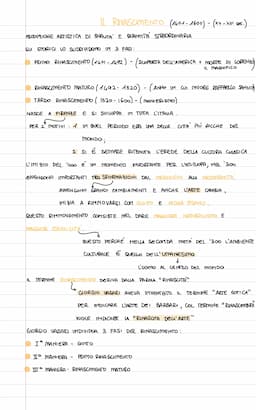 IL RINASCIMENTO (1401-1600) - (XV-XVI SEC.)
PRODUZIONE ARTISTICA DI QUALITÀ E QUANTITÀ STRAORDINARIA
GLI STORICI LO SUDDIVIDONO IN 3 FASI:
PRIMO RINASCIMENTO (1401-1492) - (SCOPERTA DELL'AMERICA + MORTE DI LORENZO
IL MAGNIFICO
RINASCIMENTO MATURO (1492-1520) - (ANNO IN CUI MUORE RAFFAELLO SANZIO)
TARDO RINASCIMENTO (1520-1600) - (MANIERISMO)
NASCE A FIRENZE E SI SVILUPPA IN TUTTA L'ITALIA.
PER 2 MOTIVI: 1 IN QUEL PERIODO ERA UNA DELLE CITTÀ PIÙ RICCHE DEL
MONDO;
2 SI È SEMPRE RITENUTA L'EREDE DELLA CULTURA CLASSICA
L'INIZIO DEL '400 È UN MOMENTO IMPORTANTE PER L'EUROPA, NEL '300
AVVENGONO IMPORTANTI TRASFORMAZIONI DAL MEDIOEVO ALLA MODERNITÀ.
AVVENGONO GRANDI CAMBIAMENTI E ANCHE L'ARTE CAMBIA,
INIZIA A RINNOVARSI CON GIOTTO E
QUESTO RINNOVAMENTO CONSISTE NEL DARE MAGGIORE NATURALISMO E
MAGGIOR
QUESTO PERCHÉ NELLA SECONDA METÀ DEL '300 L'AMBIENTE
CULTURALE È QUELLO DELL'UMANESIMO
L'UOMO AL CENTRO DEL MONDO
IL TERMINE RINASCIMENTO DERIVA DALLA PAROLA "RINASCITA"
GIORGIO VASARI AVEVA INVENTATO IL TERMINE "ARTE GOTICA"
PER INDICARE L'ARTE DEI BARBARI, COL TERMINE "RINASCIMENTO"
VUOLE INDICARE LA "RINASCITA DELL'ARTE"
GIORGIO VASARI INDIVIDUA 3 FASI DEL RINASCIMENTO:
Iª MANIERA - GOTICO
IIª MANIERA - PRIMO RINASCIMENTO
IIIª MANIERA - RINASCIMENTO MATURO